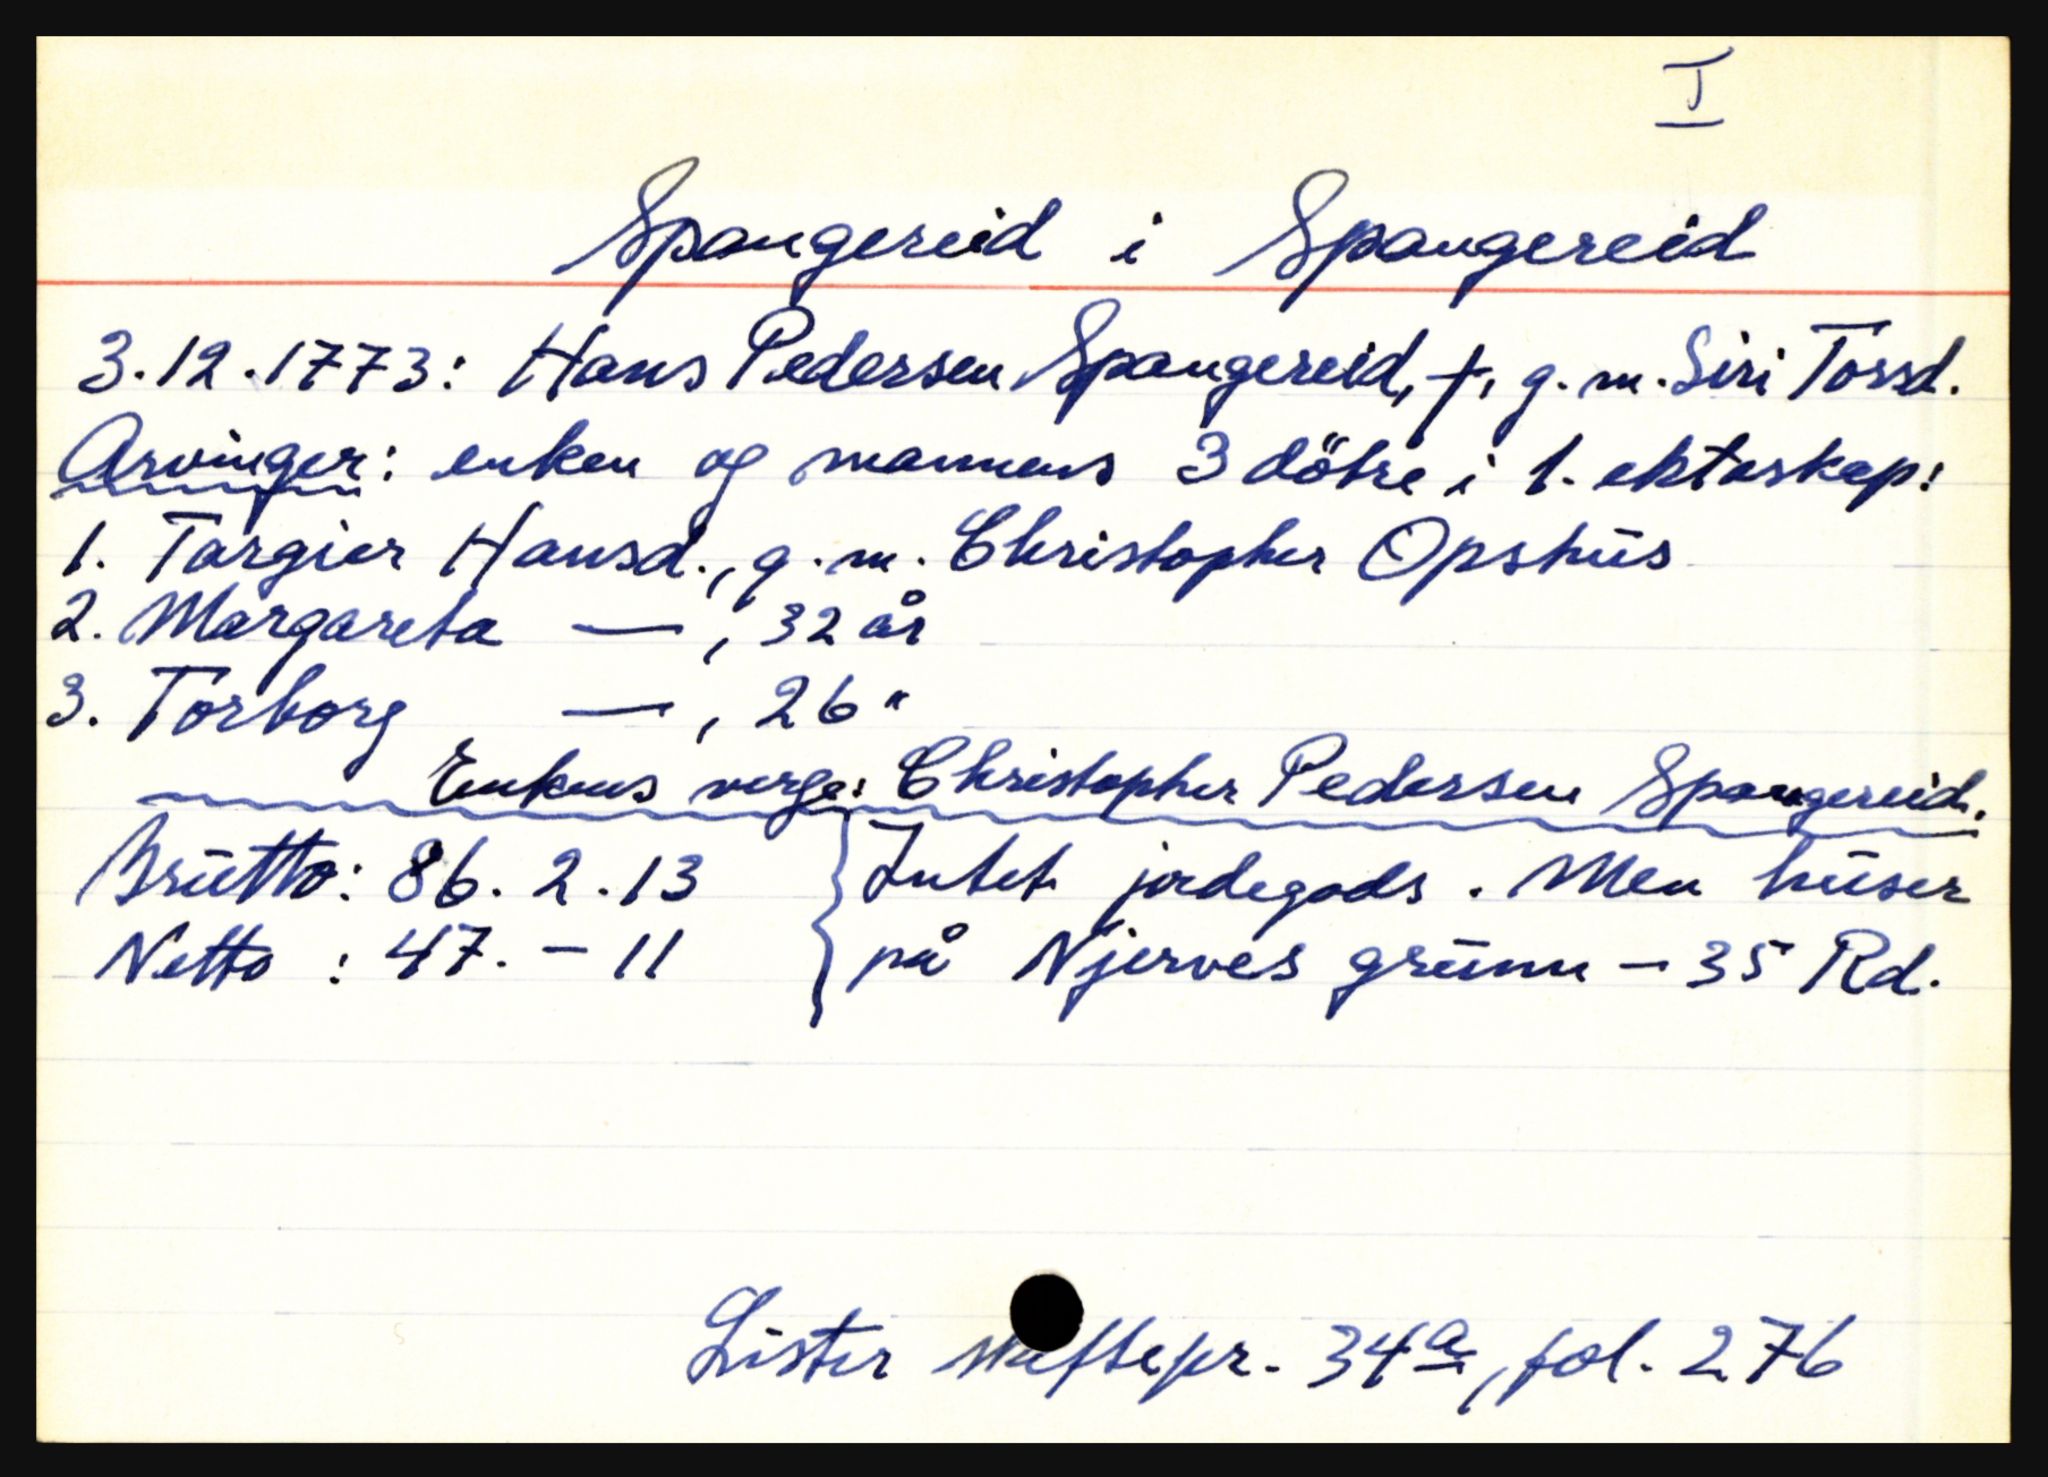 I
Spangereid i Spangereid
3.12.1773: Hans Pedersen Spangereid, †, g.m. Siri Torsd.
Arvinger: enken og mannens 3 dötre i 1. ektaskap:
1. Targier Hansd., g.m. Christopher Opshūs
2. Margareta — , 32 år
3. Torborg — , 26 "
Enkens verge: Christopher Pedersen Spangereid.
Brūtto: 86. 2. 13 } Intet jordegods. Men hūser
Netto : 47. – 11 } på Njerves grūnn – 35 Rd.
Lister skiftepr. 34a, fol. 276